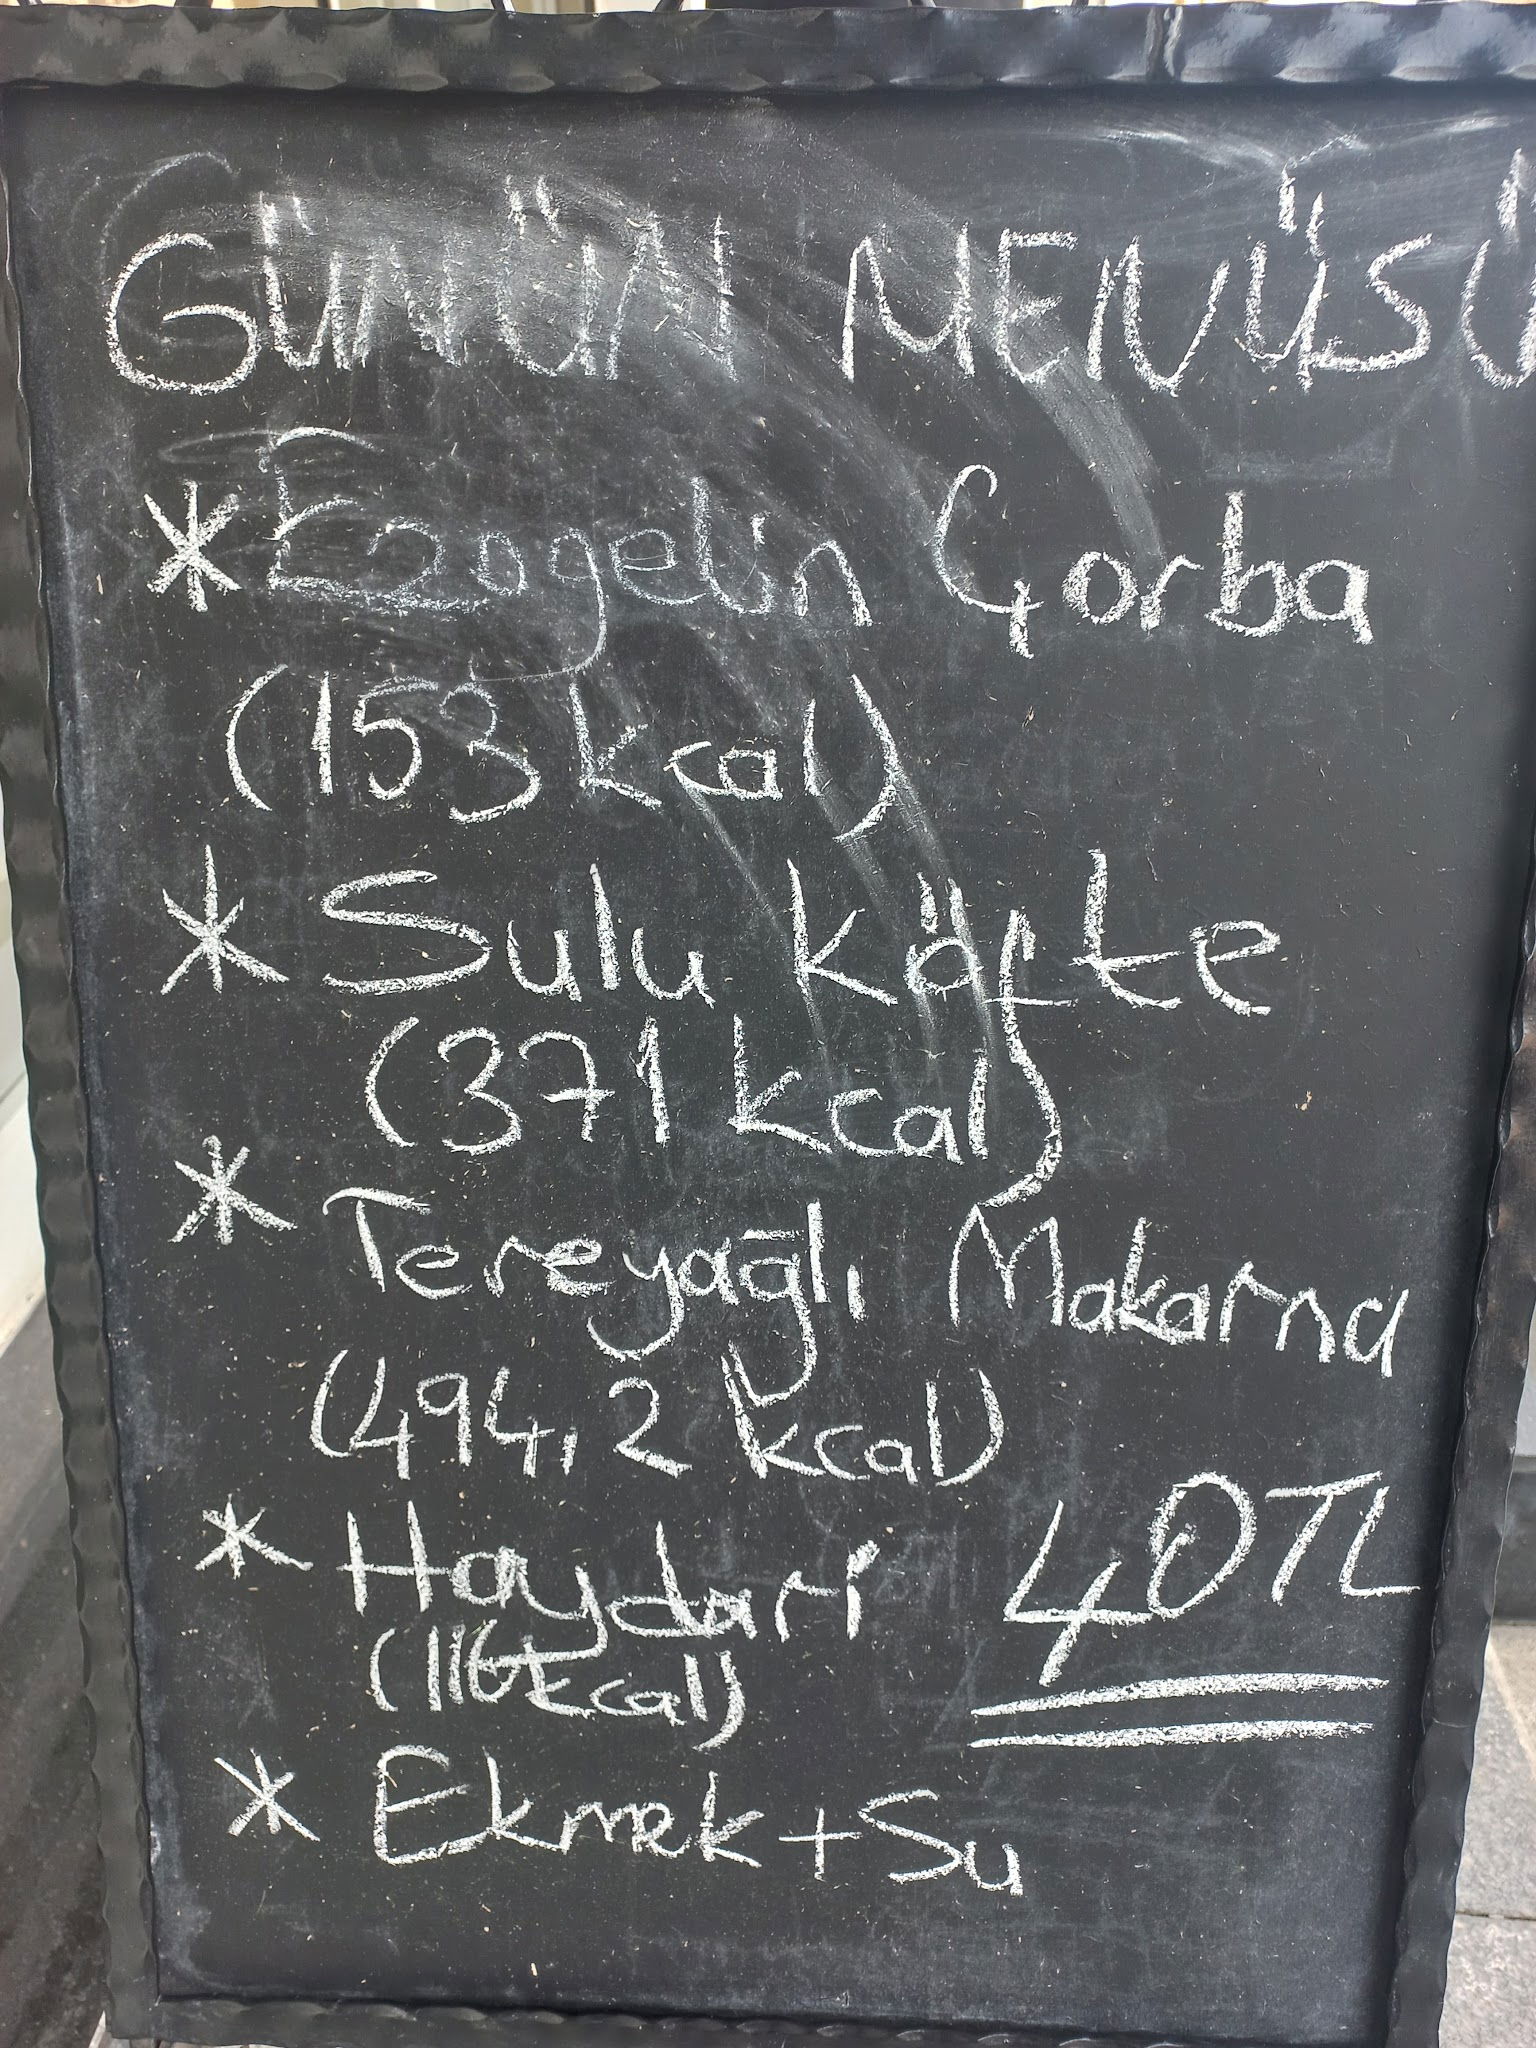 GÜNÜN MENÜSÜ
* Ezogelin Çorba
(153 kcal)
* Sulu köfte
(371 kcal)
* Tereyağlı Makarna
(494,2 kcal)
* Haydari 40TL
(116kcal)
* Ekmek + Su